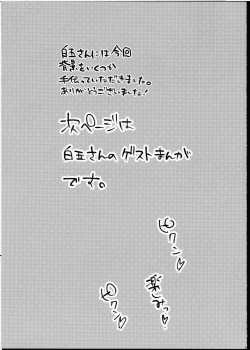 白玉さんには今回
背景をいくつか
手伝っていただきました。
ありがとうございました!
次ページは
白玉さんのゲストまんが
です。
ピクン♡
楽しみっ♡
ピクン♡